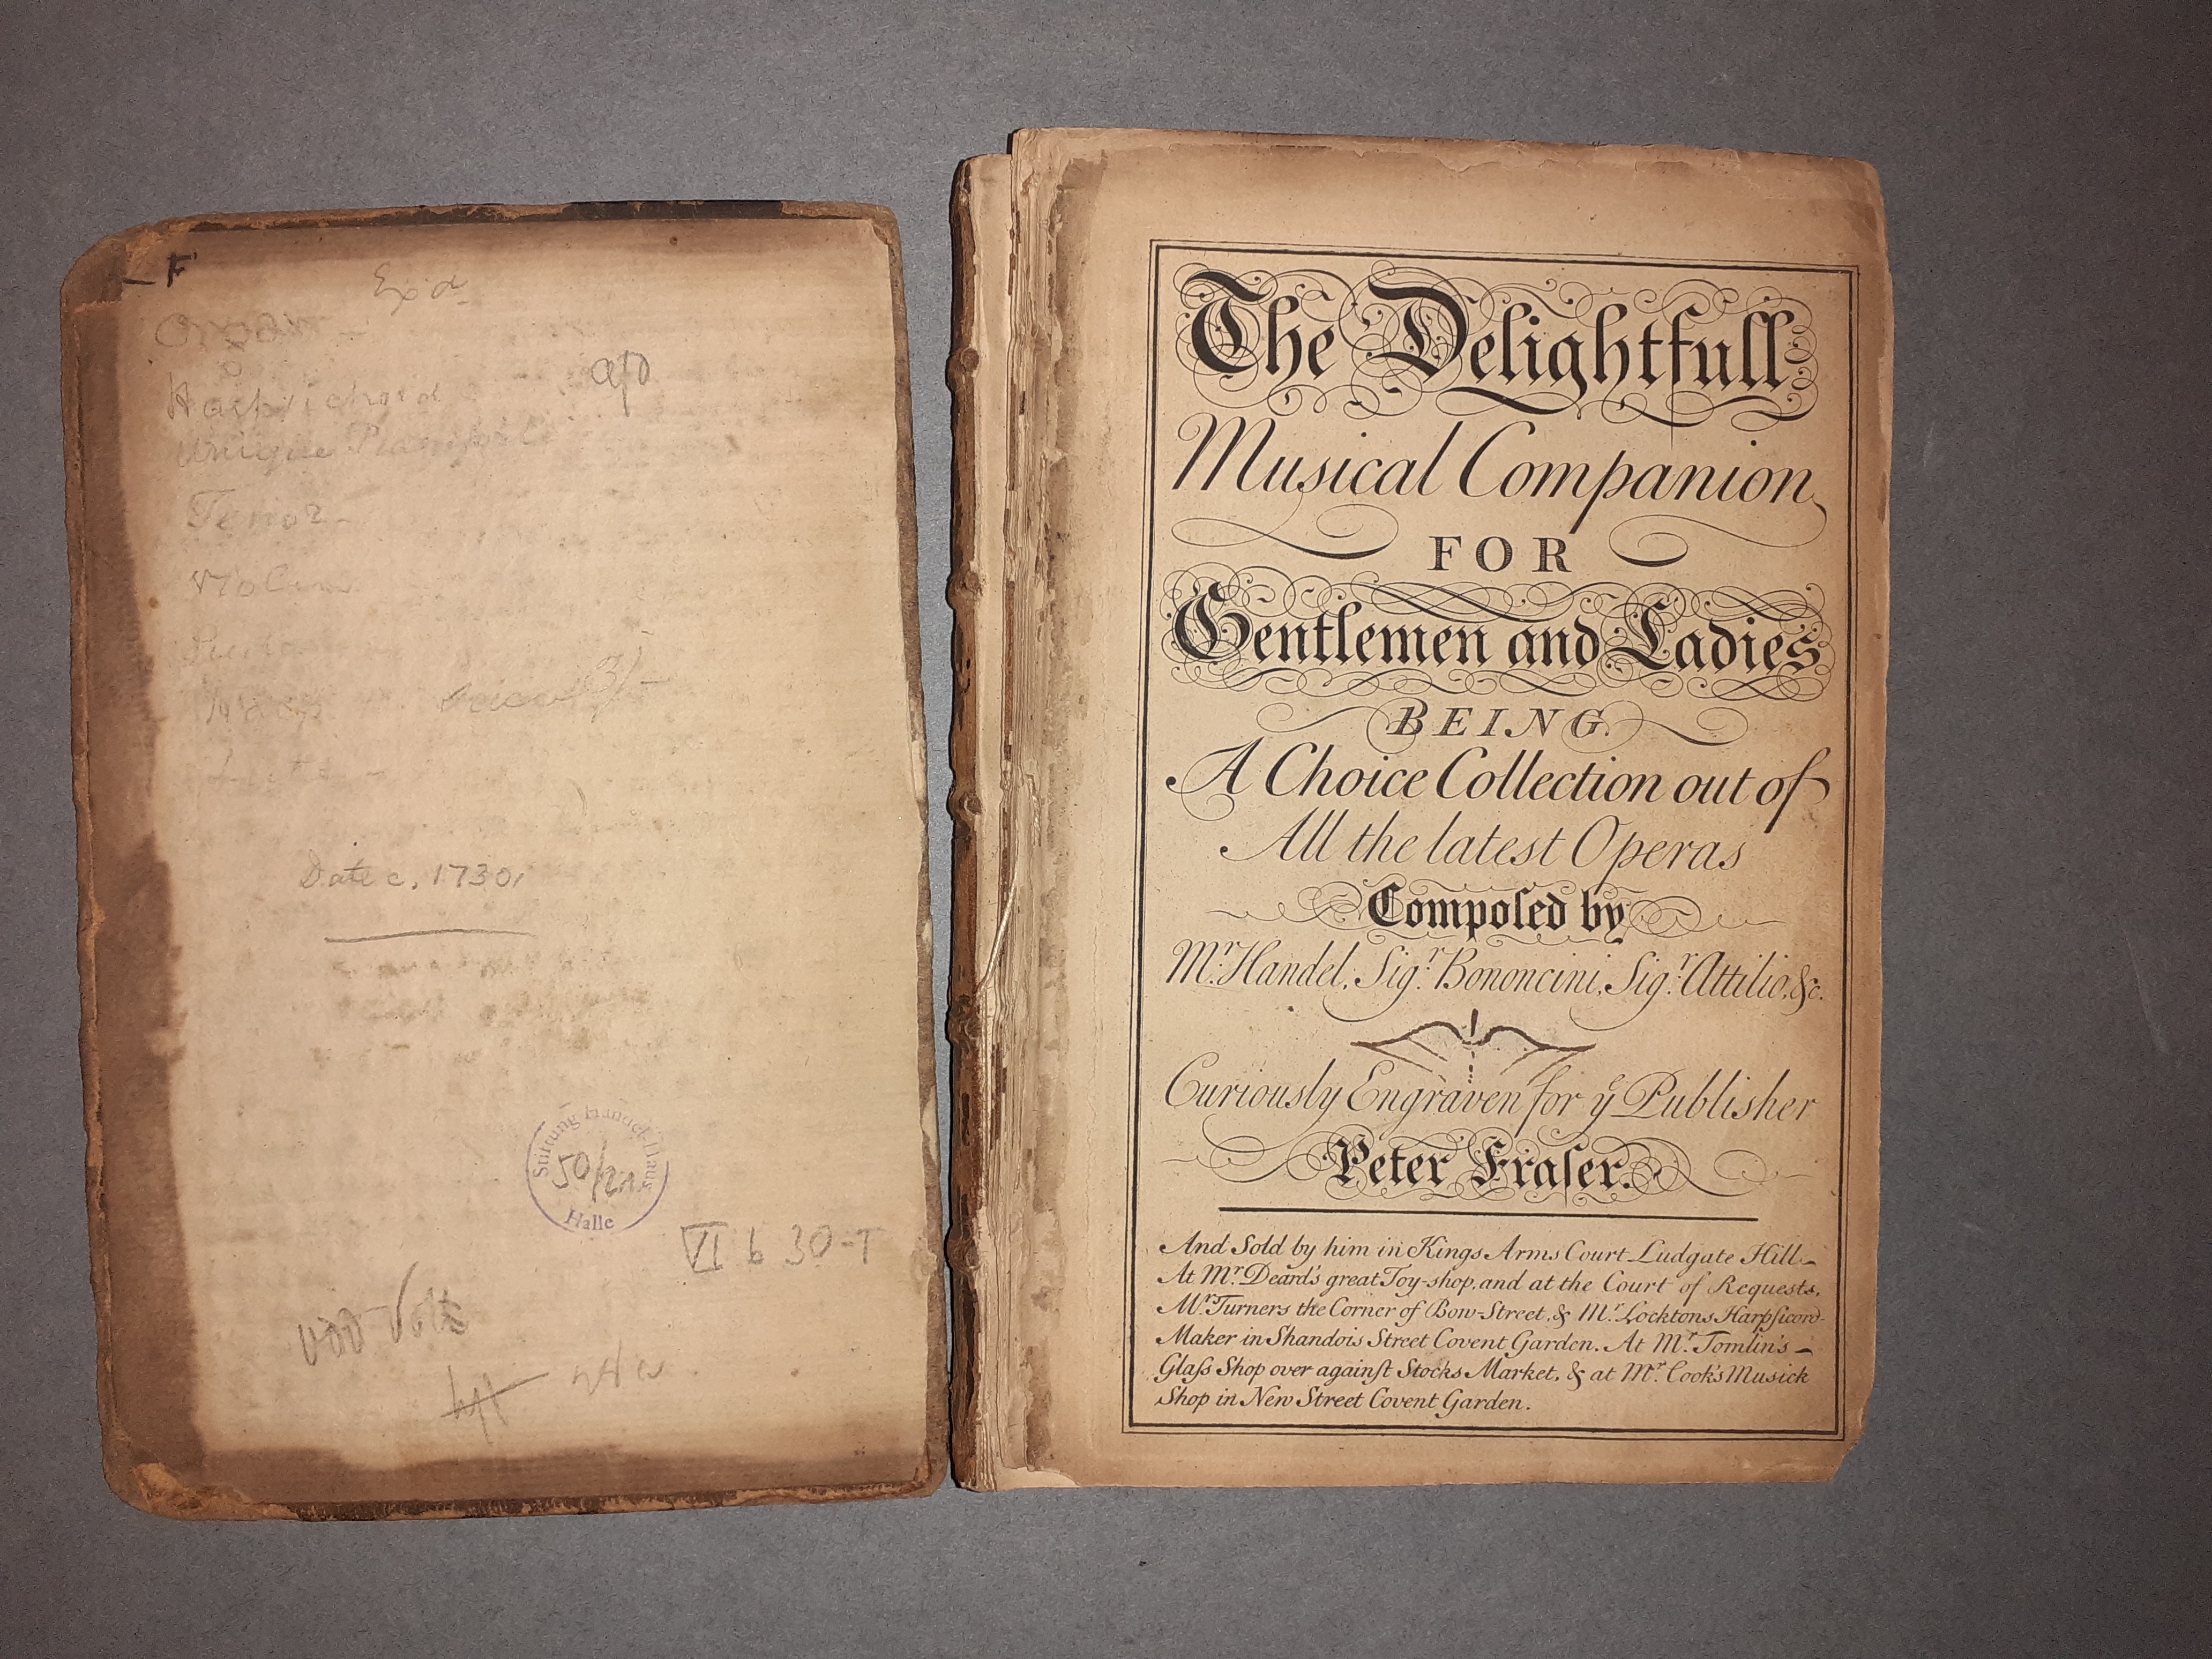 F
Exd
Organ -
Harpsichord
Unique
Tenor -
Violin
Date c. 1730
Stiftung Händel Haus
50/21
Halle
VI b 30-T
The Delightfull
Musical Companion
FOR
Gentlemen and Ladies
BEING
A Choice Collection out of
All the latest Operas
Compoſed by
Mr. Handel, Sigr. Bononcini, Sigr. Attilio, &c.
Curiously Engraven for ye Publisher
Peter Fraſer.
And Sold by him in Kings Arms Court Ludgate Hill.
At Mr. Deard's great Toy-shop, and at the Court of Requests,
Mr. Turners the Corner of Bow-Street, & Mr. Locktons Harpſicord-
Maker in Shandois Street Covent Garden. At Mr. Tomlin's
Glaſs Shop over againſt Stocks Market, & at Mr. Cook's Musick
Shop in New Street Covent Garden.